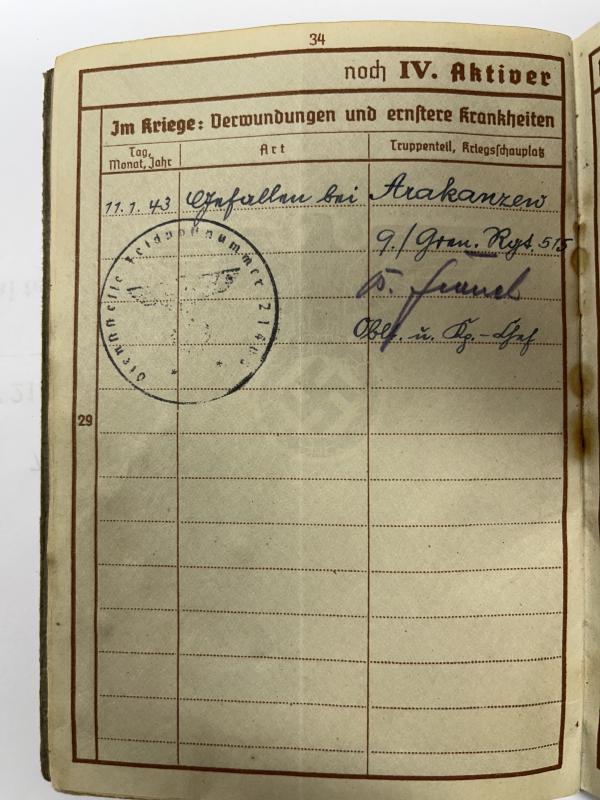 34
noch IV. Aktiver
Im Kriege: Verwundungen und ernstere Krankheiten
Tag, Monat, Jahr
Art
Truppenteil, Kriegsschauplatz
11.1.43 Gefallen bei Arakanzew
9./Gren. Rgt. 515
Oblt. u. Kp.-Chef
Dienststelle Feldpostnummer
29